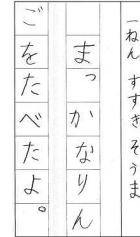 一ねん すずき そうま
まっかなりん
ごをたべたよ。